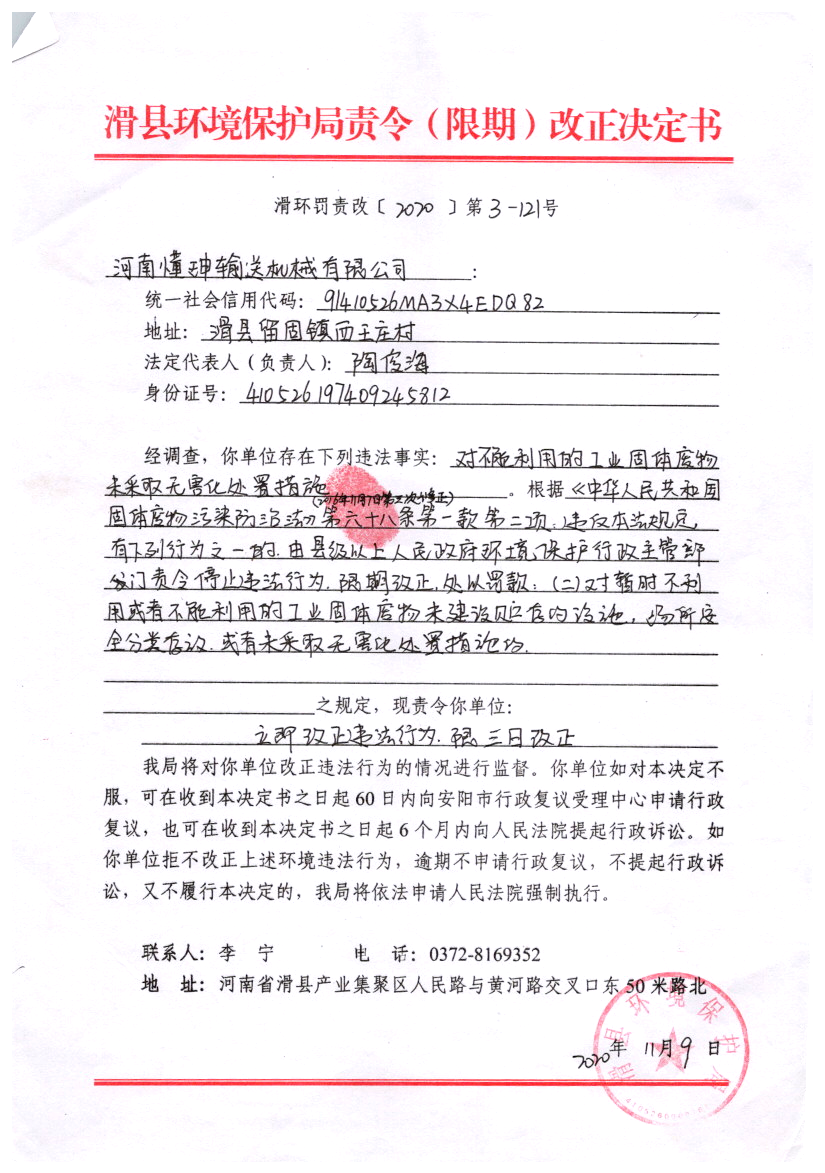 滑县环境保护局责令（限期）改正决定书
滑环罚责改〔 2020 〕第 3-121 号
河南懂珅输送机械有限公司：
统一社会信用代码：91410526MA3X4EDQ82
地址：滑县留固镇西王庄村
法定代表人（负责人）：陶俊海
身份证号：410526197409245812
经调查，你单位存在下列违法事实：对不能利用的工业固体废物
未采取无害化处置措施。根据《中华人民共和国
(2016年11月7日第三次修正)
固体废物污染防治法》第六十八条第一款第二项，违反本法规定，
有下列行为之一的，由县级以上人民政府环境保护行政主管部
门责令停止违法行为，限期改正，处以罚款：（二）对暂时不利
用或者不能利用的工业固体废物未建设贮存的设施、场所安
全分类存放，或者未采取无害化处置措施的.
之规定，现责令你单位：
立即改正违法行为，限三日改正
我局将对你单位改正违法行为的情况进行监督。你单位如对本决定不
服，可在收到本决定书之日起 60 日内向安阳市行政复议受理中心申请行政
复议，也可在收到本决定书之日起 6 个月内向人民法院提起行政诉讼。如
你单位拒不改正上述环境违法行为，逾期不申请行政复议，不提起行政诉
讼，又不履行本决定的，我局将依法申请人民法院强制执行。
联系人：李 宁 电 话：0372-8169352
地 址：河南省滑县产业集聚区人民路与黄河路交叉口东 50 米路北
滑县环境保护局
2020年 11月 9 日